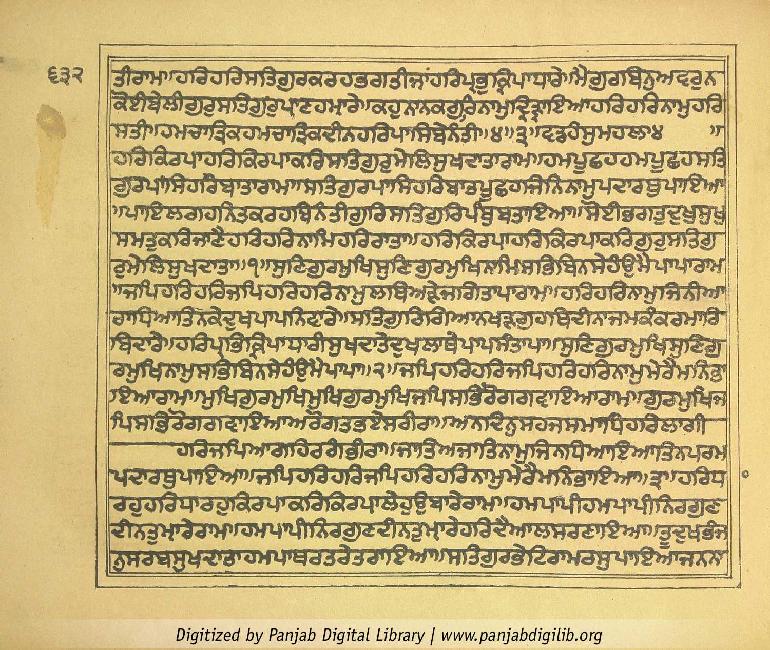 ੬੩੨
ਤੀਰਾਮ॥ਹਰਿਹਰਿਸਤਿਗੁਰਕਰਹਭਗਤੀਜਾਂਹਰਿਪ੍ਰਭੁਕਿਰਪਾਧਾਰੇ॥ਮੈਗੁਰਬਿਨੁਅਵਰੁਨ
ਕੋਈਬੇਲੀਗੁਰੁਸਤਿਗੁਰੁਪ੍ਰਾਣਹਮਾਰੇ॥ਕਹੁਨਾਨਕਗੁਰਿਨਾਮੁਦ੍ਰਿੜਾਇਆਹਰਿਹਰਿਨਾਮੁਹਰਿ
ਸਤੀ॥ਹਮਚਾਤ੍ਰਿਕਹਮਚਾਤ੍ਰਿਕਦੀਨਹਰਿਪਾਸਿਬੇਨੰਤੀ॥੪॥੩॥ਵਡਹੰਸੁਮਹਲਾ੪ ॥
ਹਰਿਕਿਰਪਾਹਰਿਕਿਰਪਾਕਰਿਸਤਿਗੁਰੁਮੇਲਿਸੁਖਦਾਤਾਰਾਮ॥ਹਮਪੂਛਹਹਮਪੂਛਹਸਤਿ
ਗੁਰਪਾਸਿਹਰਿਬਾਤਾਰਾਮ॥ਸਤਿਗੁਰਪਾਸਿਹਰਿਬਾਤਪੂਛਹਜਿਨਿਨਾਮੁਪਦਾਰਥੁਪਾਇਆ
॥ਪਾਇਲਗਹਨਿਤਕਰਹਬਿਨੰਤੀਗੁਰਿਸਤਿਗੁਰਿਪੰਥੁਬਤਾਇਆ॥ਸੋਈਭਗਤੁਦੁਖੁਸੁਖੁ
ਸਮਤੁਕਰਿਜਾਣੈਹਰਿਹਰਿਨਾਮਿਹਰਿਰਾਤਾ॥ਹਰਿਕਿਰਪਾਹਰਿਕਿਰਪਾਕਰਿਗੁਰੁਸਤਿਗੁ
ਰੁਮੇਲਿਸੁਖਦਾਤਾ॥੧॥ਸੁਣਿਗੁਰਮੁਖਿਸੁਣਿਗੁਰਮੁਖਿਨਾਮਿਸਭਿਬਿਨਸੇਹੰਉਮੈਪਾਪਾਰਾਮ
॥ਜਪਿਹਰਿਹਰਿਜਪਿਹਰਿਹਰਿਨਾਮੁਲਥਿਅੜੇਜਗਿਤਾਪਾਰਾਮ॥ਹਰਿਹਰਿਨਾਮੁਜਿਨੀਆ
ਰਾਧਿਆਤਿਨਕੇਦੁਖਪਾਪਨਿਵਾਰੇ॥ਸਤਿਗੁਰਿਗਿਆਨਖੜਗੁਹਥਿਦੀਨਾਜਮਕੰਕਰਮਾਰਿ
ਬਿਦਾਰੇ॥ਹਰਿਪ੍ਰਭਿਕ੍ਰਿਪਾਧਾਰੀਸੁਖਦਾਤੇਦੁਖਲਾਥੇਪਾਪਸੰਤਾਪਾ॥ਸੁਣਿਗੁਰਮੁਖਿਸੁਣਿਗੁ
ਰਮੁਖਿਨਾਮੁਸਭਿਬਿਨਸੇਹੰਉਮੈਪਾਪਾ॥੨॥ਜਪਿਹਰਿਹਰਿਜਪਿਹਰਿਹਰਿਨਾਮੁਮੇਰੈਮਨਿਭਾ
ਇਆਰਾਮ॥ਮੁਖਿਗੁਰਮੁਖਿਮੁਖਿਗੁਰਮੁਖਿਜਪਿਸਭਿਰੋਗਗਵਾਇਆਰਾਮ॥ਗੁਰਮੁਖਿਜ
ਪਿਸਭਿਰੋਗਗਵਾਇਆਅਰੋਗਤਭਏਸਰੀਰਾ॥ਅਨਦਿਨੁਸਹਜਸਮਾਧਿਹਰਿਲਾਗੀ
ਹਰਿਜਪਿਆਗਹਿਰਗੰਭੀਰਾ॥ਜਾਤਿਅਜਾਤਿਨਾਮੁਜਿਨਧਿਆਇਆਤਿਨਪਰਮ
ਪਦਾਰਥੁਪਾਇਆ॥ਜਪਿਹਰਿਹਰਿਜਪਿਹਰਿਹਰਿਨਾਮੁਮੇਰੈਮਨਿਭਾਇਆ॥੩॥ਹਰਿਧ
ਰਹੁਹਰਿਧਾਰਹੁਕਿਰਪਾਕਰਿਕਿਰਪਾਲੇਹੁਉਬਾਰੇਰਾਮ॥ਹਮਪਾਪੀਹਮਪਾਪੀਨਿਰਗੁਣ
ਦੀਨਤੁਮ੍ਹਾਰੇਰਾਮ॥ਹਮਪਾਪੀਨਿਰਗੁਣਦੀਨਤੁਮ੍ਹਾਰੇਹਰਿਦੈਆਲਸਰਣਾਇਆ॥ਤੂਦੁਖਭੰਜ
ਨੁਸਰਬਸੁਖਦਾਤਾਹਮਪਾਥਰਤਰੇਤਰਾਇਆ॥ਸਤਿਗੁਰਭੇਟਿਰਾਮਰਸੁਪਾਇਆਜਨਨਾ
Digitized by Panjab Digital Library | www.panjabdigilib.org